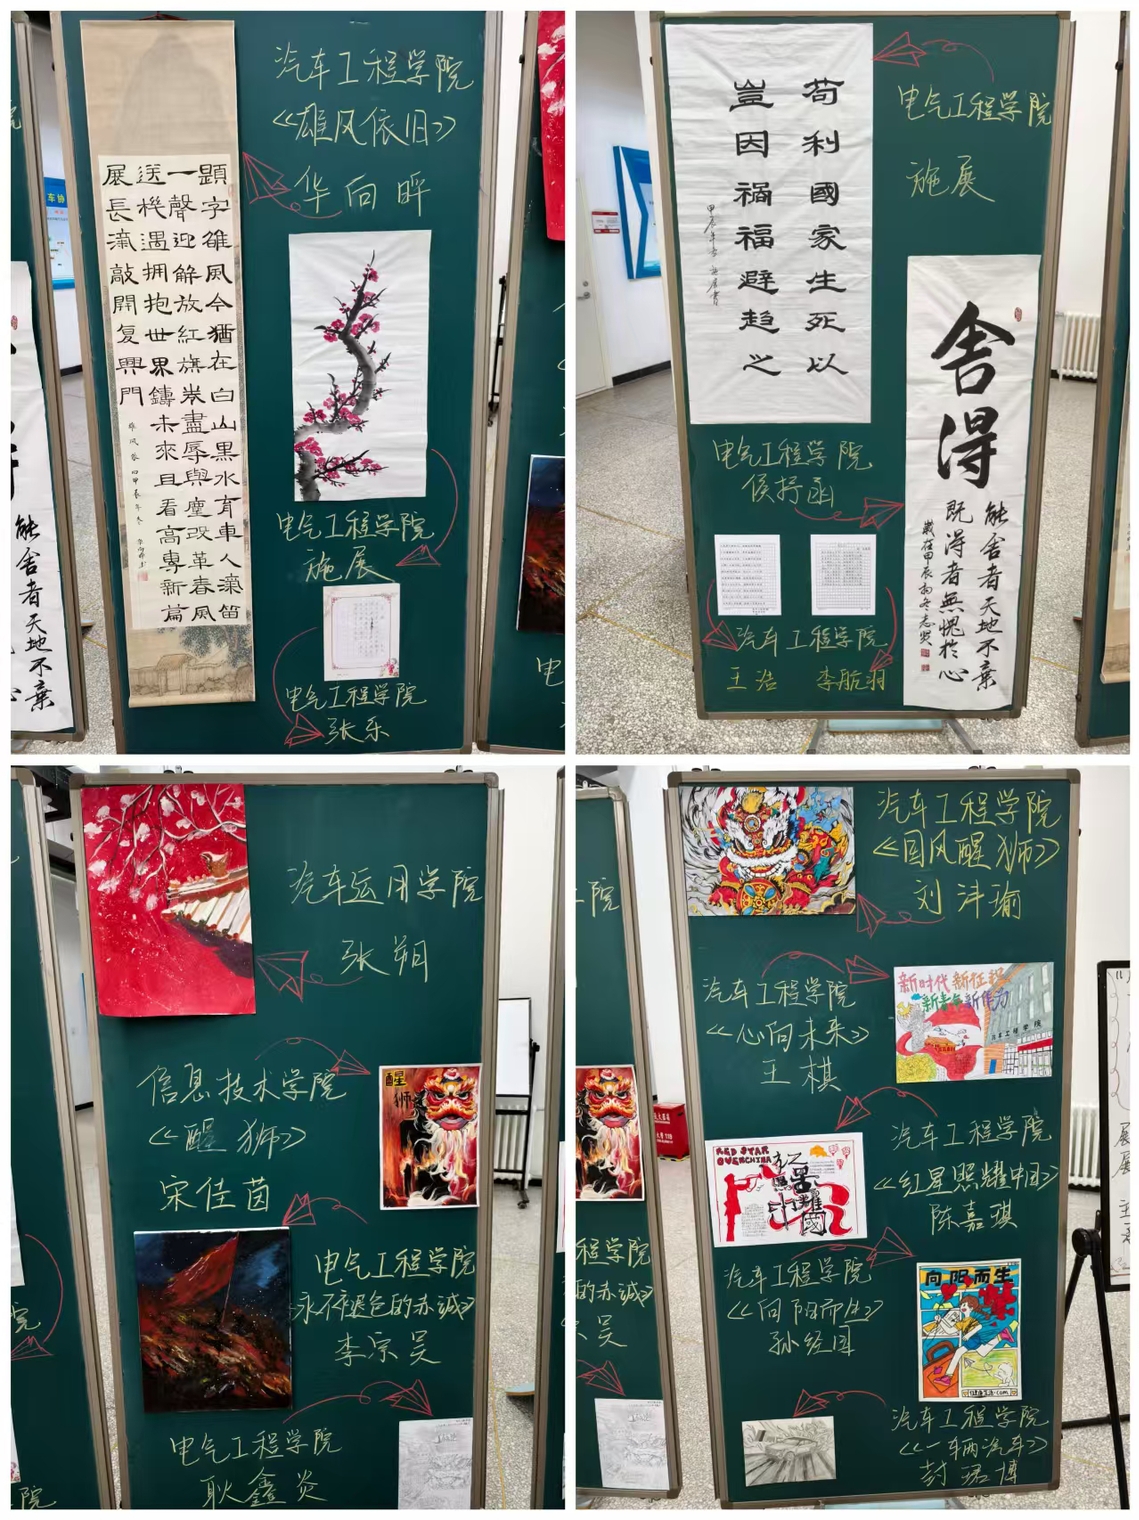 汽车工程学院
《雄风依旧》
华向晖
题字雄风今犹在白山黑水育车人汽笛
一聲迎解放紅旗裝盡辱與塵改革春风
送機遇拥抱世界鑄未來且看高專新篇
展長流敲開复興門
电气工程学院
施展
电气工程学院
张乐
能舍者天地不棄
电气工程学院
施展
苟利國家生死以
豈因禍福避趋之
甲辰年冬 施展書
舍得
能舍者天地不棄
既得者無愧於心
歲在甲辰初冬志賢
电气工程学院
侯抒函
汽车工程学院
王浩 李航羽
汽车运用学院
张朔
信息技术学院
《醒狮》
宋佳茵
醒
狮
电气工程学院
永不褪色的赤诚》
李宗昊
电气工程学院
耿鑫炎
汽车工程学院
《国风醒狮》
刘沣瑜
汽车工程学院
《心向未来》
王棋
新时代 新征程
新青年 新作为
汽车工程学院
汽车工程学院
《红星照耀中国》
陈嘉琪
RED STAR
OVER CHINA
红星照耀中國
汽车工程学院
《向阳而生》
孙经国
向阳而生
汽车工程学院
《一辆汽车》
封珺博